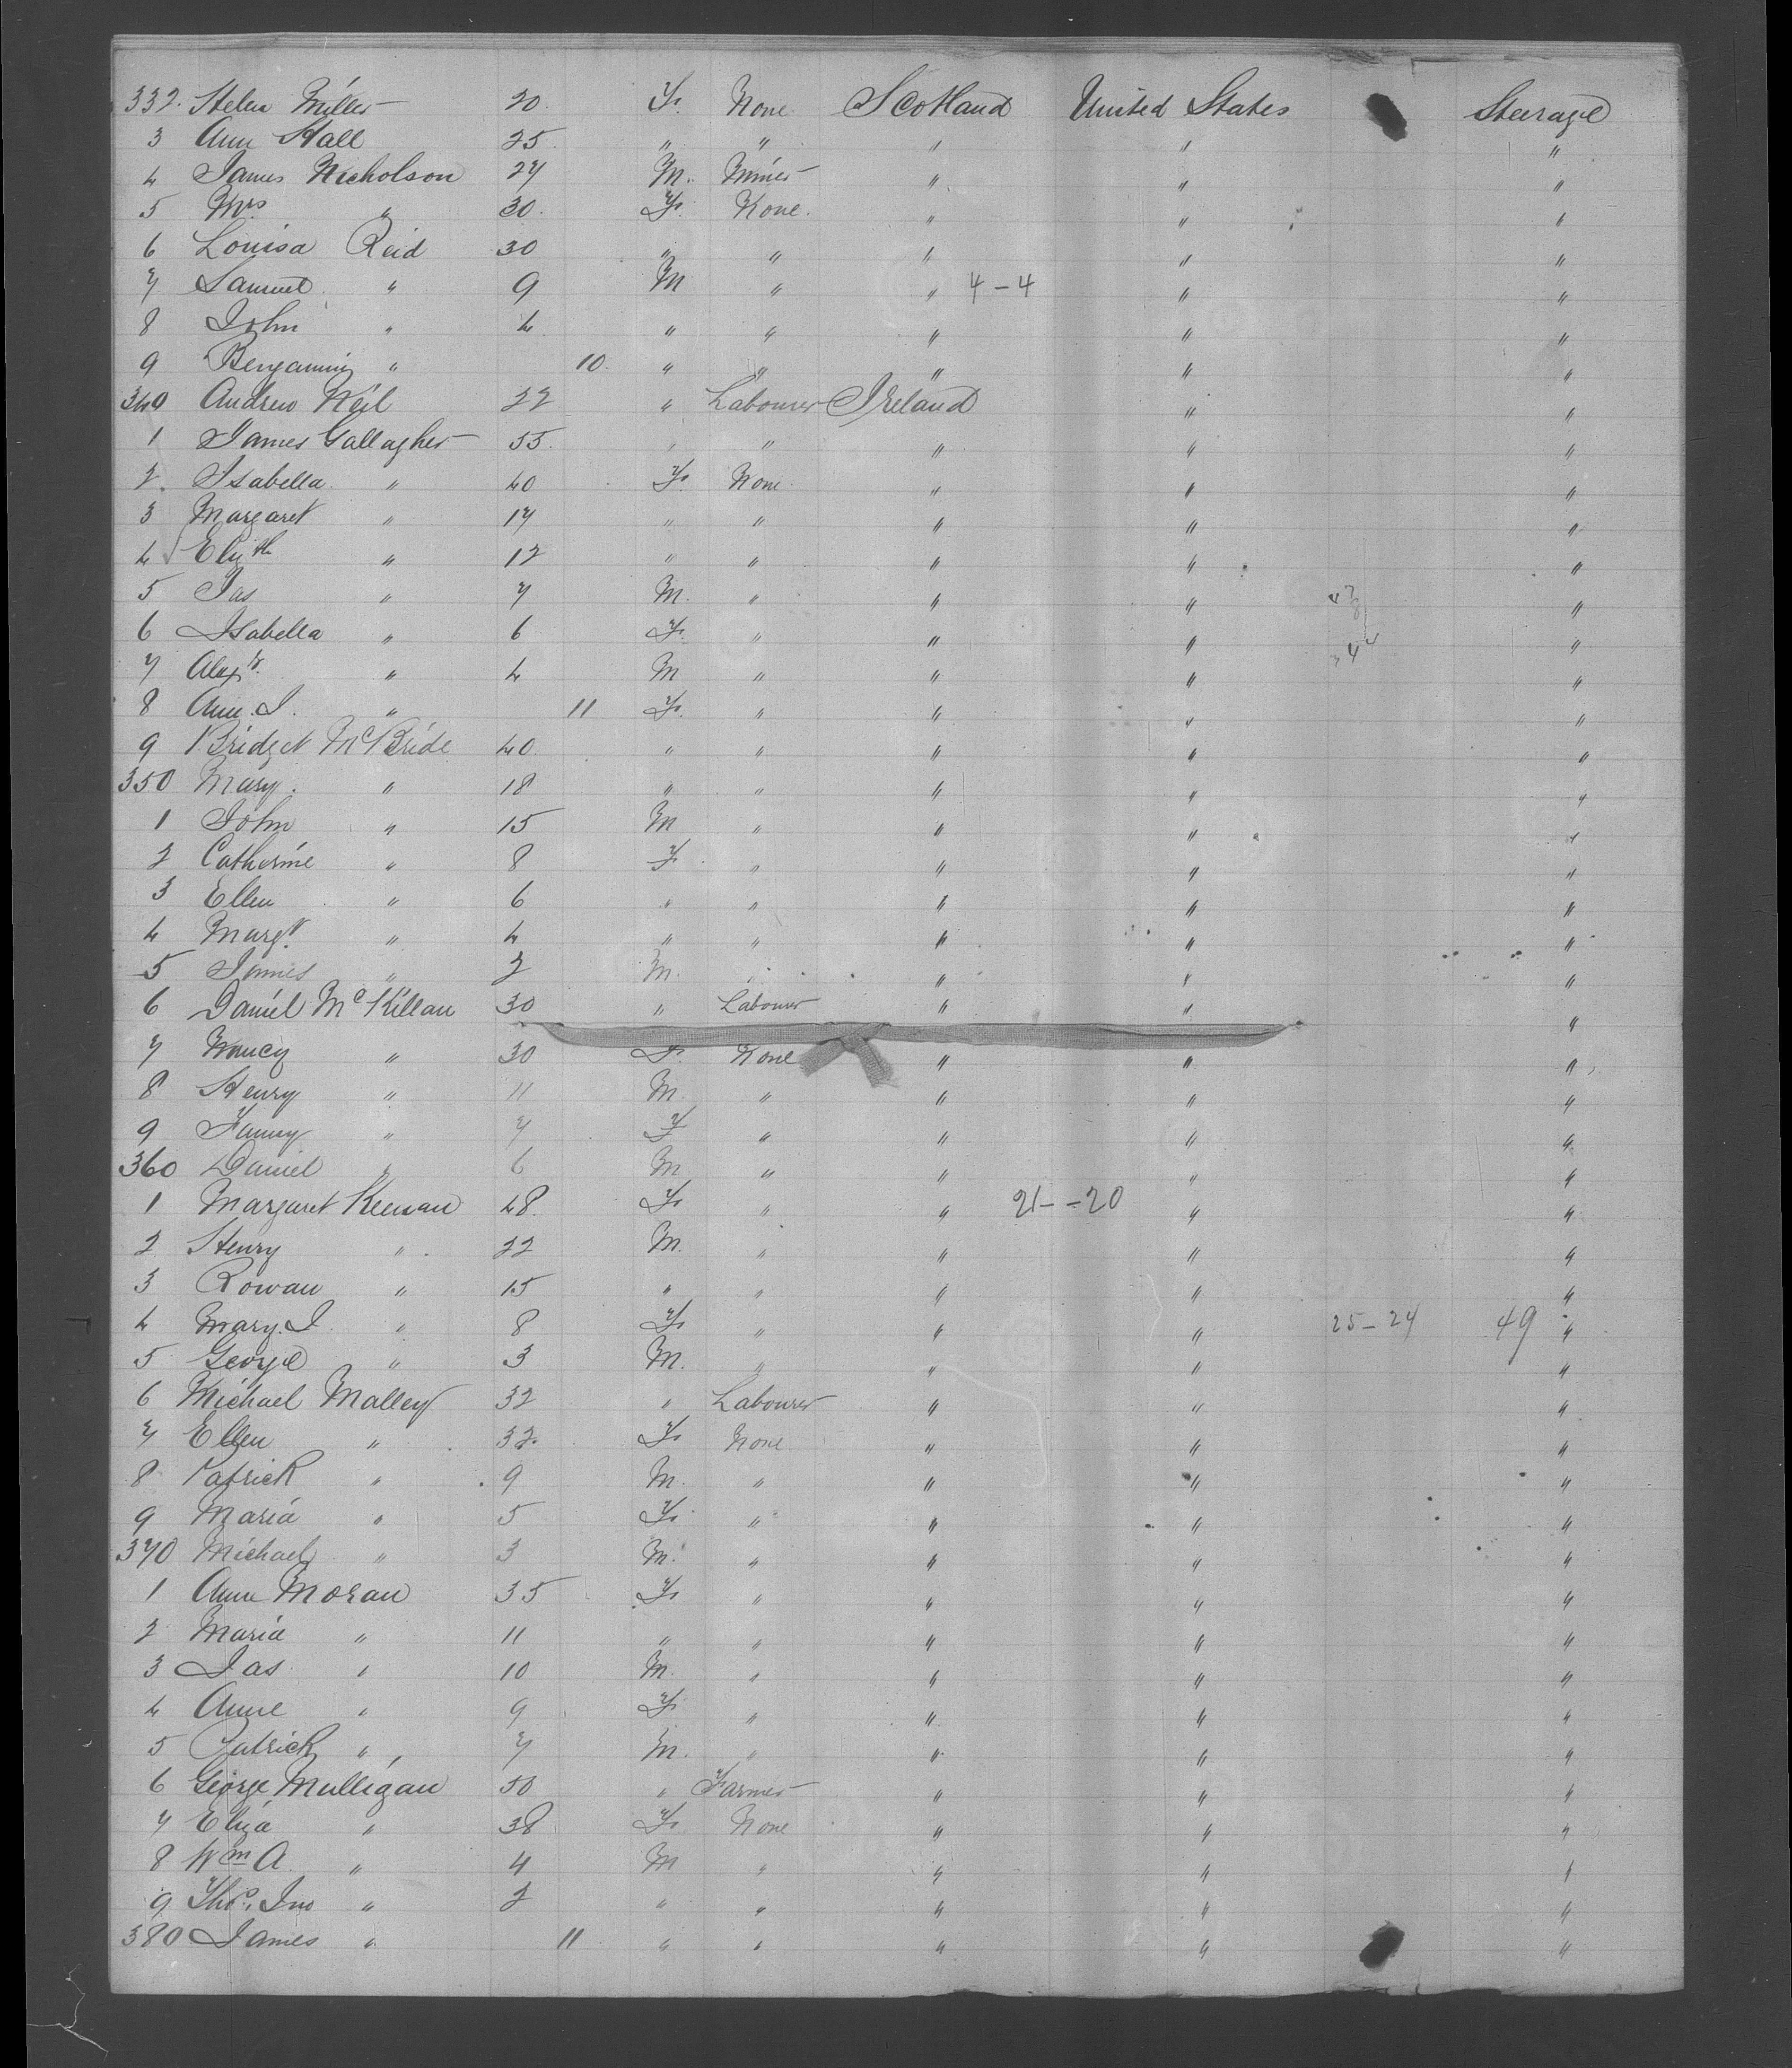 332. Helen Miller 20. F. None Scotland United States Steerage
3 Ann Hall 25 " " " " "
4 James Nicholson 27 M. Miner " " "
5 Mrs " 30. F. None. " " "
6 Louisa Reid 30 " " " " "
7 Samuel " 9 M " " 4-4 " "
8 John " 4 " " " " "
9 Benjamin " 10. " " " " "
340 Andrew Neil 22 " Labourer Ireland " "
1 James Gallagher 55. " " " " "
2. Isabella " 40 F. None. " " "
3 Margaret " 17 " " " " "
4 Elizth " 12 " " " " "
5 Jas " 7 M. " " " "
6 Isabella " 6 F. " " " "
7 Alexr. " 4 M " " " "
8 Ann. J. " 11 F. " " " "
9 Bridget McBride 40 " " " " "
350 Mary. " 18 " " " " "
1 John " 15 M " " " "
2 Catherine " 8 F. " " " "
3 Ellen " 6 " " " " "
4 Margt. " 4 " " " " "
5 James " 2 M. " " " "
6 Daniel McKillan 30 " Labourer " " "
7 Nancy " 30 F. None " " "
8 Henry " 11 M. " " " "
9 Fanny " 7 F " " " "
360 Daniel " 6 M " " " "
1 Margaret Keenan 48. F. " " 21--20 " "
2 Henry " 22 M. " " " "
3 Rowan " 15 " " " " "
4 Mary. J " 8 F. " " " 25-24 49 "
5 George " 3 M. " " " "
6 Michael Malley 32 " Labourer " " "
7 Ellen " 32. F. None " " "
8 Patrick " 9 M. " " " "
9 Maria " 5 F. " " " "
370 Michael " 3 M. " " " "
1 Ann Moran 35 F. " " " "
2 Maria " 11 " " " " "
3 Jas. " 10 M. " " " "
4 Anne " 9 F. " " " "
5 Patrick " 7 M. " " " "
6 George Mulligan 50 " Farmer " " "
7 Eliza " 38 F. None " " "
8 Wm A. " 4 M " " " "
9 Thos. Jno " 2 " " " " "
380 James " 11 " " " " "